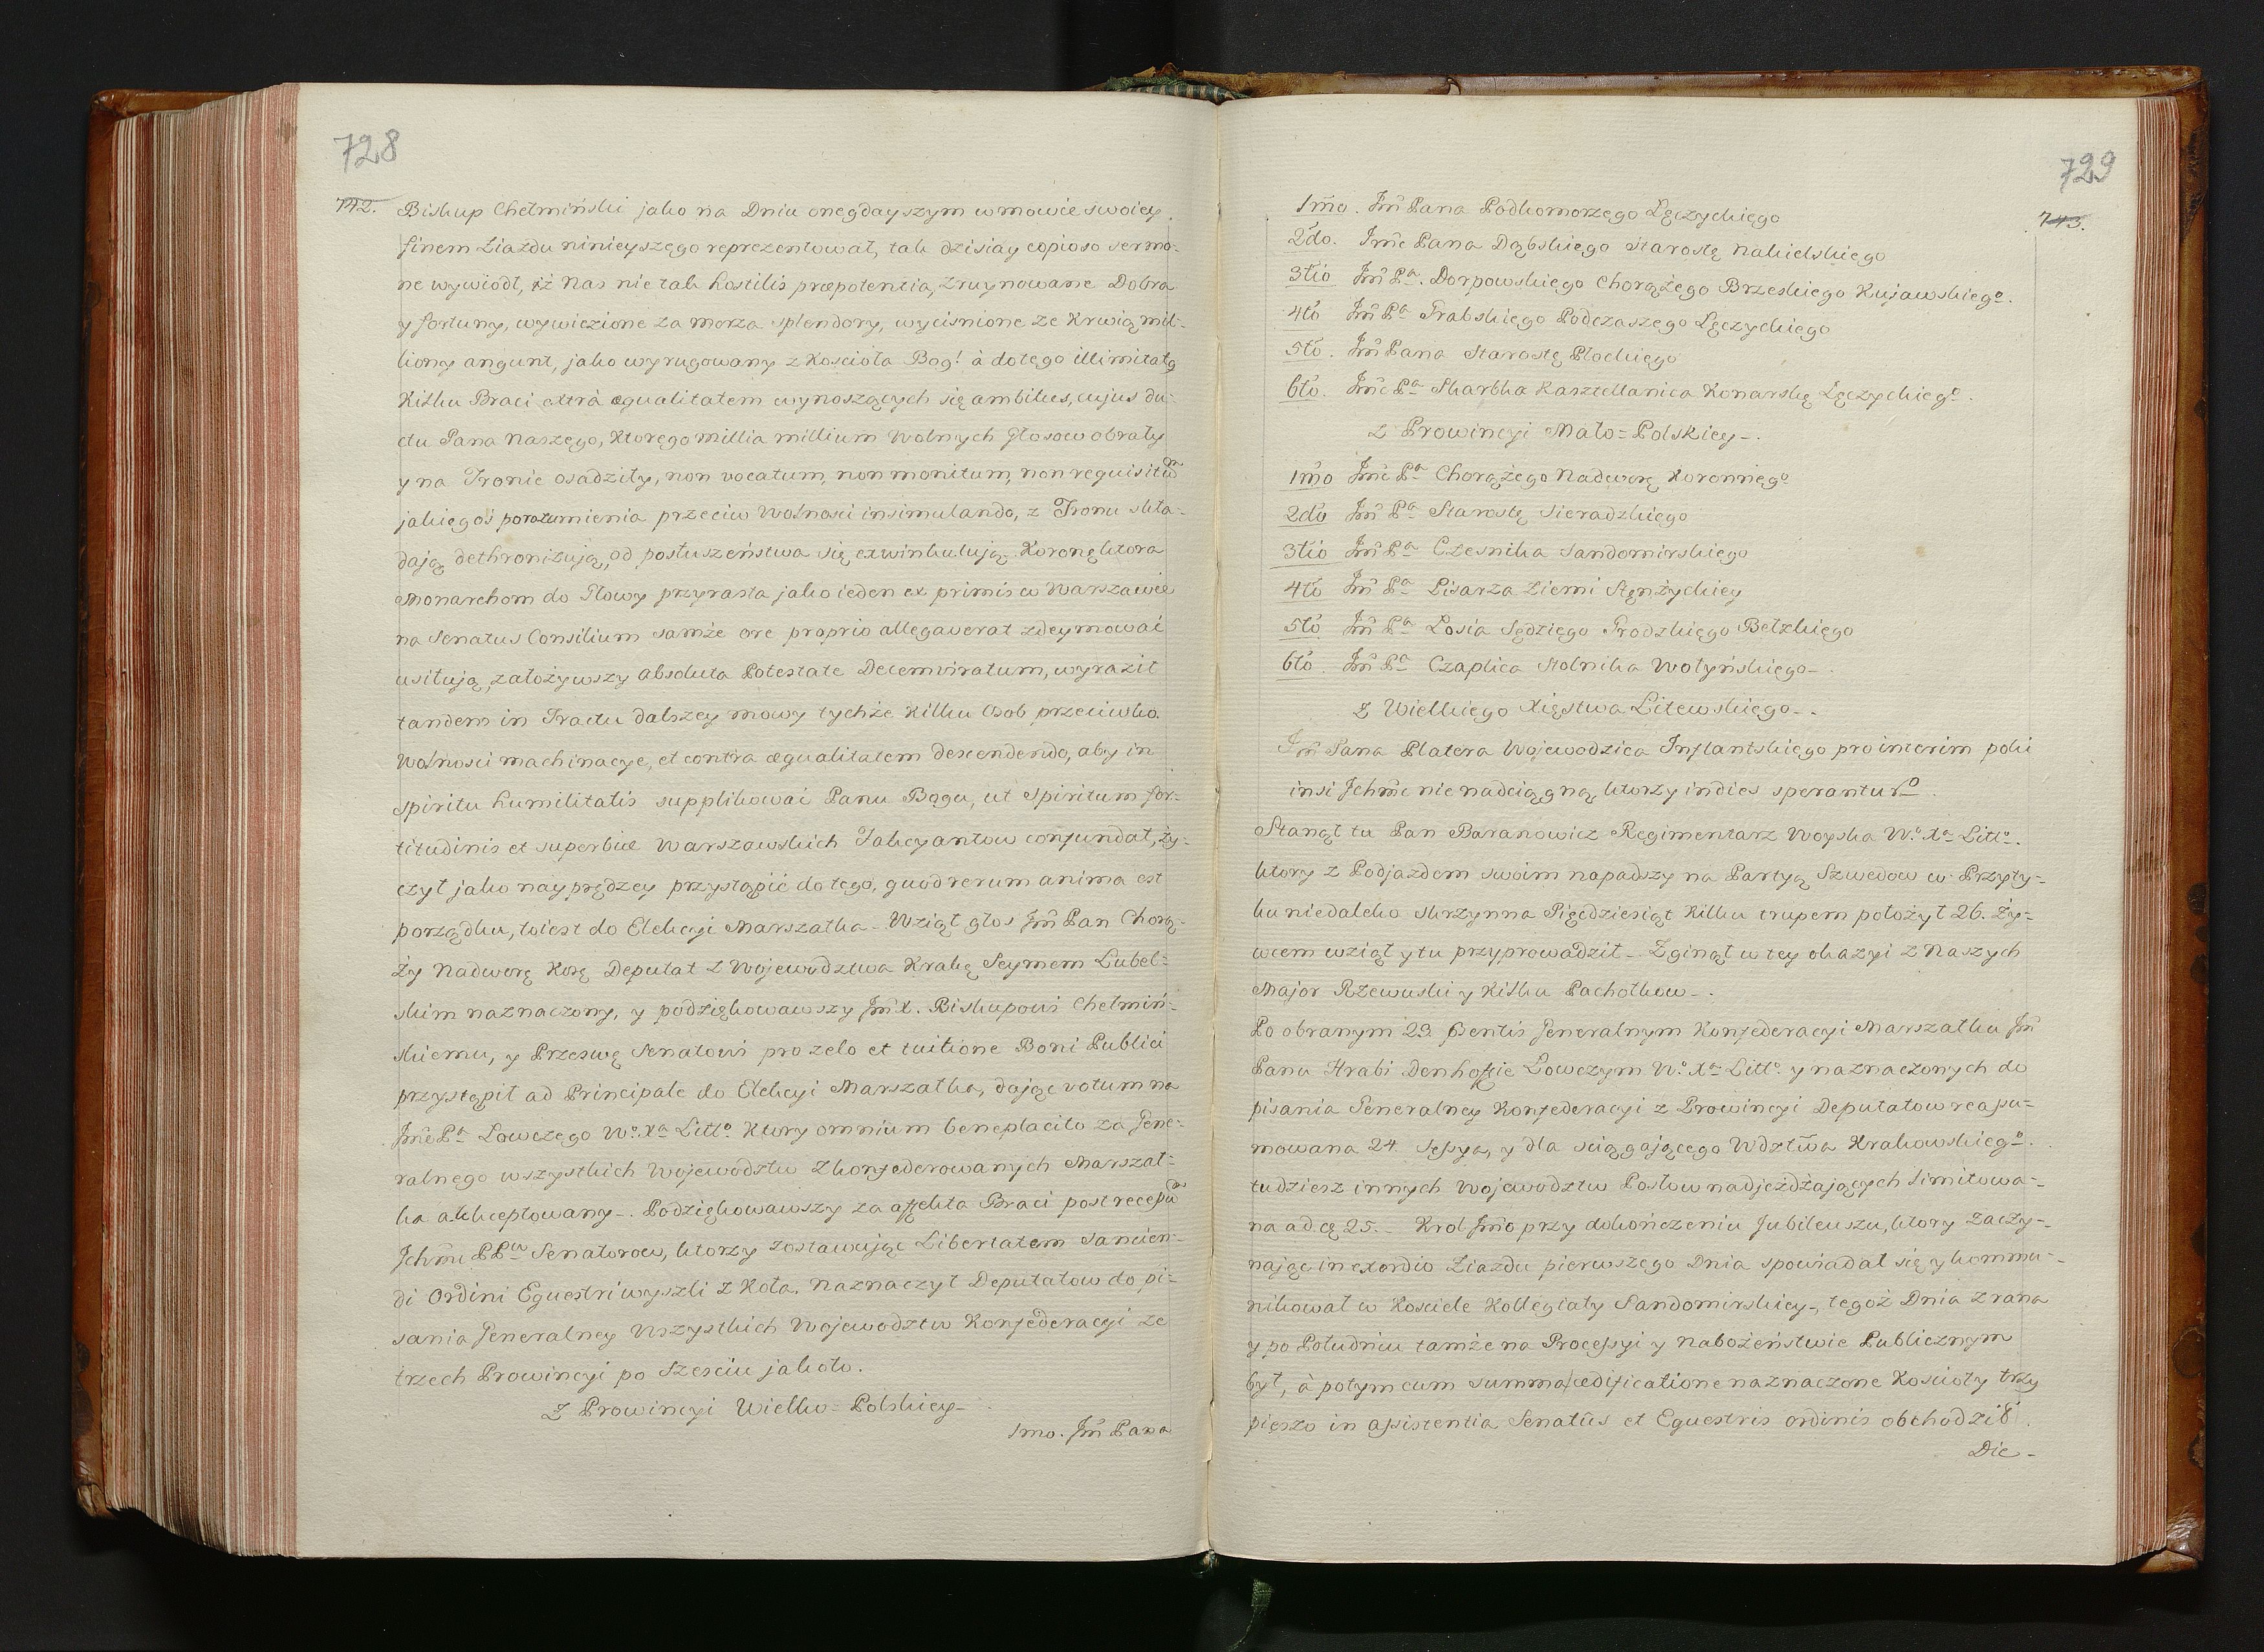 728
742. Biskup Chełmiński jako na Dniu onegdayszym w mowie swoiey
finem Ziazdu ninieyszego reprezentował, tak dzisiay copioso sermo-
ne wywiodł, iż Nas nie tak hostilis præpotentia, zruynowane Dobra
y fortuny, wywiezione za morza splendory, wyciśnione ze Krwią mil-
liony angunt, jako wyrugowany z Kościoła Bog! à do tego illimitatą
Kilku Braci extrà æqualitatem wynoszących się ambitus, cujus du-
ctu Pana Naszego, Ktorego millia millium Wolnych Głosow obrały
y na Tronie osadziły, non vocatum, non monitum, non requisitum
jakiegoś porozumienia przeciw Wolności insimulando, z Tronu skła-
dają dethronizują, od posłuszeństwa się exwinkulują. Koronę ktora
Monarchom do Głowy przyrasta jako ieden ex primis w Warszawie
na Senatus Consilium samże ore proprio allegaverat zdeymować
usiłują, założywszy absoluta Potestate Decemviratum, wyraził
tandem in Tractu dalszey mowy tychże Kilku Osob przeciwko
Wolności machinacye, et contra æqualitatem descendendo, aby in
spiritu humilitatis supplikować Panu Bogu, ut Spiritum for-
titudinis et superbiæ Warszawskich Fakcyantow confundat, ży-
czył jako nayprędzey przystąpić do tego, quod rerum anima est
porządku, to iest do Elekcyi Marszałka. Wziął głos Jm̃ Pan Chorą-
ży Nadworę Korę Deputat z Wojewodztwa Krakę Seymem Lubel-
skim naznaczony, y podziękowawszy Jm̃ X. Biskupowi Chełmiń-
skiemu, y Przeswę Senatowi pro zelo et tuitione Boni Publici
przystąpił ad Principale do Elekcyi Marszałka, dając votum na
Jm̃c Pa Łowczego Wo. Xa Litto. Ktory omnium beneplacito za Gene-
ralnego wszystkich Wojewodztw Zkonfederowanych Marszał-
ka akkceptowany. Podziękowawszy za affekta Braci post recessum
Jchm̃ PPw Senatorow, ktorzy zostawując Libertatem sancien-
di Ordini Equestri wyszli z Koła. Naznaczył Deputatow do pi-
sania Generalney Wszystkich Wojewodztw Konfederacyi ze
trzech Prowincyi po Sześciu jako to.
Z Prowincyi Wielko-Polskiey
1mo. Jm̃ Pana
729
743.
1mo. Jm̃ Pana Podkomorzego Łęczyckiego
2do. Jm̃c Pana Dąbskiego Starostę Nakielskiego
3tio Jm̃ Pa. Dorpowskiego Chorążego Brzeskiego Kujawskiego.
4to Jm̃ Pa Grabskiego Podczaszego Łęczyckiego
5to. Jm̃ Pana Starostę Płockiego
6to. Jm̃c Pa Skarbka Kasztellanica Konarskę Łęczyckiego.
Z Prowincyi Mało-Polskiey.
1mo Jm̃c Pa Chorążego Nadworę Koronnego
2do Jm̃ Pa Starostę Sieradzkiego
3tio Jm̃ Pa Cześnika Sandomirskiego
4to Jm̃ Pa Pisarza Ziemi Stęnżyckiey
5to Jm̃ Pa Łosia Sędziego Grodzkiego Bełzkiego
6to Jm̃ Pa Czaplica Stolnika Wołyńskiego
Z Wielkiego Xięstwa Litewskiego.
Jm̃ Pana Platera Wojewodzica Inflantskiego pro interim poki
insi Jchm̃c nie nadciągną, ktorzy indies sperantur.
Stanął tu Pan Baranowicz Regimentarz Woyska Wo. Xa Litto.
ktory z Podjazdem swoim napadszy na Partyą Szwedow w Przyty-
ku niedaleko Skrzynna Pięćdziesiąt Kilku trupem położył 26. ży-
wcem wziął y tu przyprowadził. Zginął w tey okazyi z Naszych
Major Rzewuski y Kilku Pachołkow.
Po obranym 23. præsentis Generalnym Konfederacyi Marszałku Jm̃
Panu Hrabi Denhoffie Łowczym Wo. Xa Litto. y naznaczonych do
pisania Generalney Konfederacyi z Prowincyi Deputatow reassu-
mowana 24. Sessya, y dla sciągającego Wdztwa Krakowskiego.
tudziesz innych Wojewodztw Posłow nadjeżdżających limitowa-
na ad cę 25. Krol Jm̃o przy dokończeniu Jubileuszu, ktory zaczy-
nając in exordio Ziazdu pierwszego Dnia spowiadał się y kommu-
nikował w Kościele Kollegiaty Sandomirskiey, tegoż Dnia z rana
y po Południu tamże na Processyi y nabożeństwie Publicznym
był, à potym cum summa ædificatione naznaczone Kościoły trzy
pieszo in assistentia Senatûs et Equestris ordinis obchodził.
Die